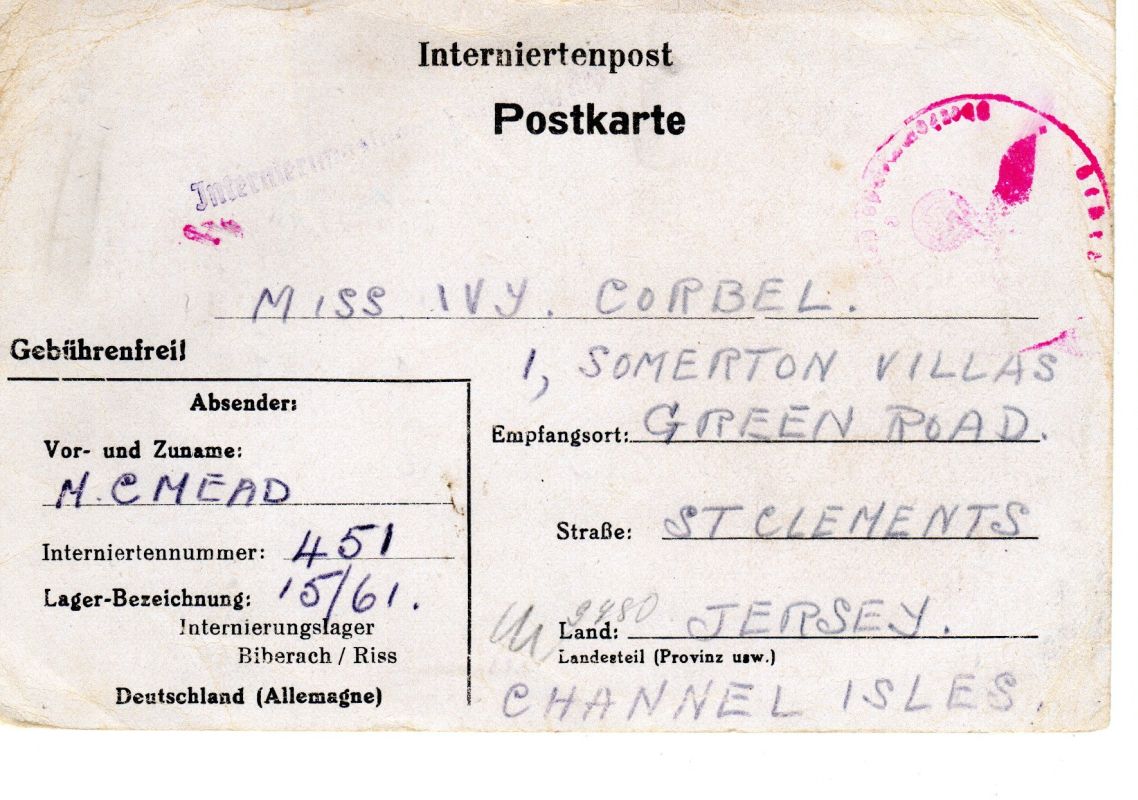 Interniertenpost
Postkarte
MISS IVY. CORBEL.
Gebührenfrei!
1, SOMERTON VILLAS
Empfangsort: GREEN ROAD.
Straße: ST CLEMENTS
9480
Land: JERSEY.
Landesteil (Provinz usw.)
CHANNEL ISLES.
Absender:
Vor- und Zuname:
M. C MEAD
Interniertennummer: 451
Lager-Bezeichnung: 15/61.
Internierungslager
Biberach / Riss
Deutschland (Allemagne)